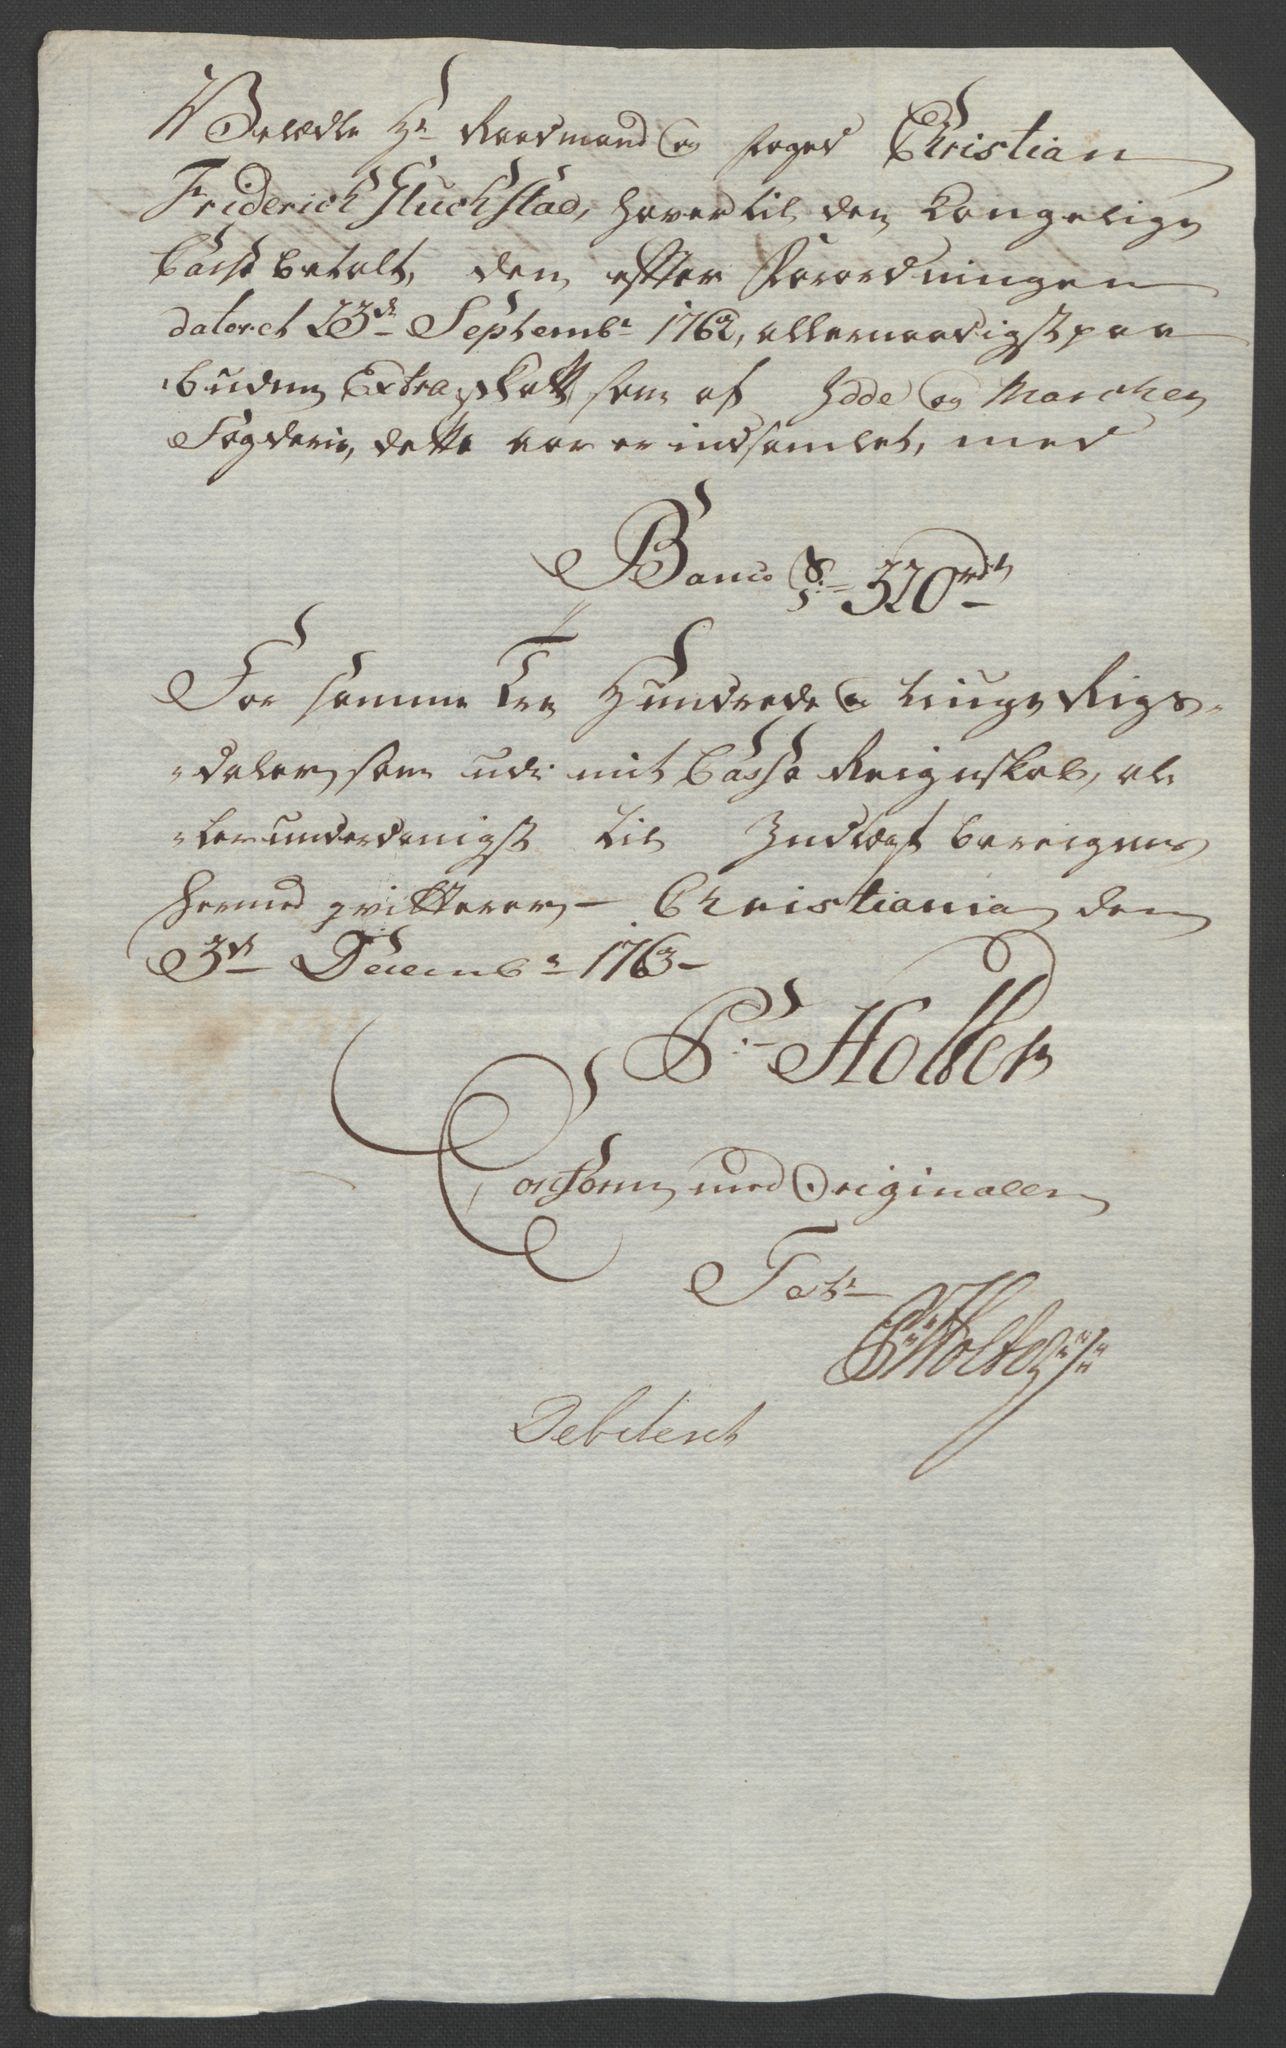 Velædle Hr Raadmand og foged Christian
Friderich Gluchstad, haver til den Kongelige
Cassa betalt, den efter Forordningen
dateret 23de Septembr 1762, allernaadigst paa
budene Extra Skatt, som af Idde og Marcker
Fogderie, dette aar er indsamlet, med
Banco S: 320 rdlr
For samme Tre Hundrede og tiuge Rigs-
-daler, som udi mit Cassa Reignskab, al
-lerunderdanigst til Indtægt bereignes
hermed qvitterer – Christiania den
3de Decembr 1763 –
P: Holter
Conform med Originalen
Test:
Debiteret